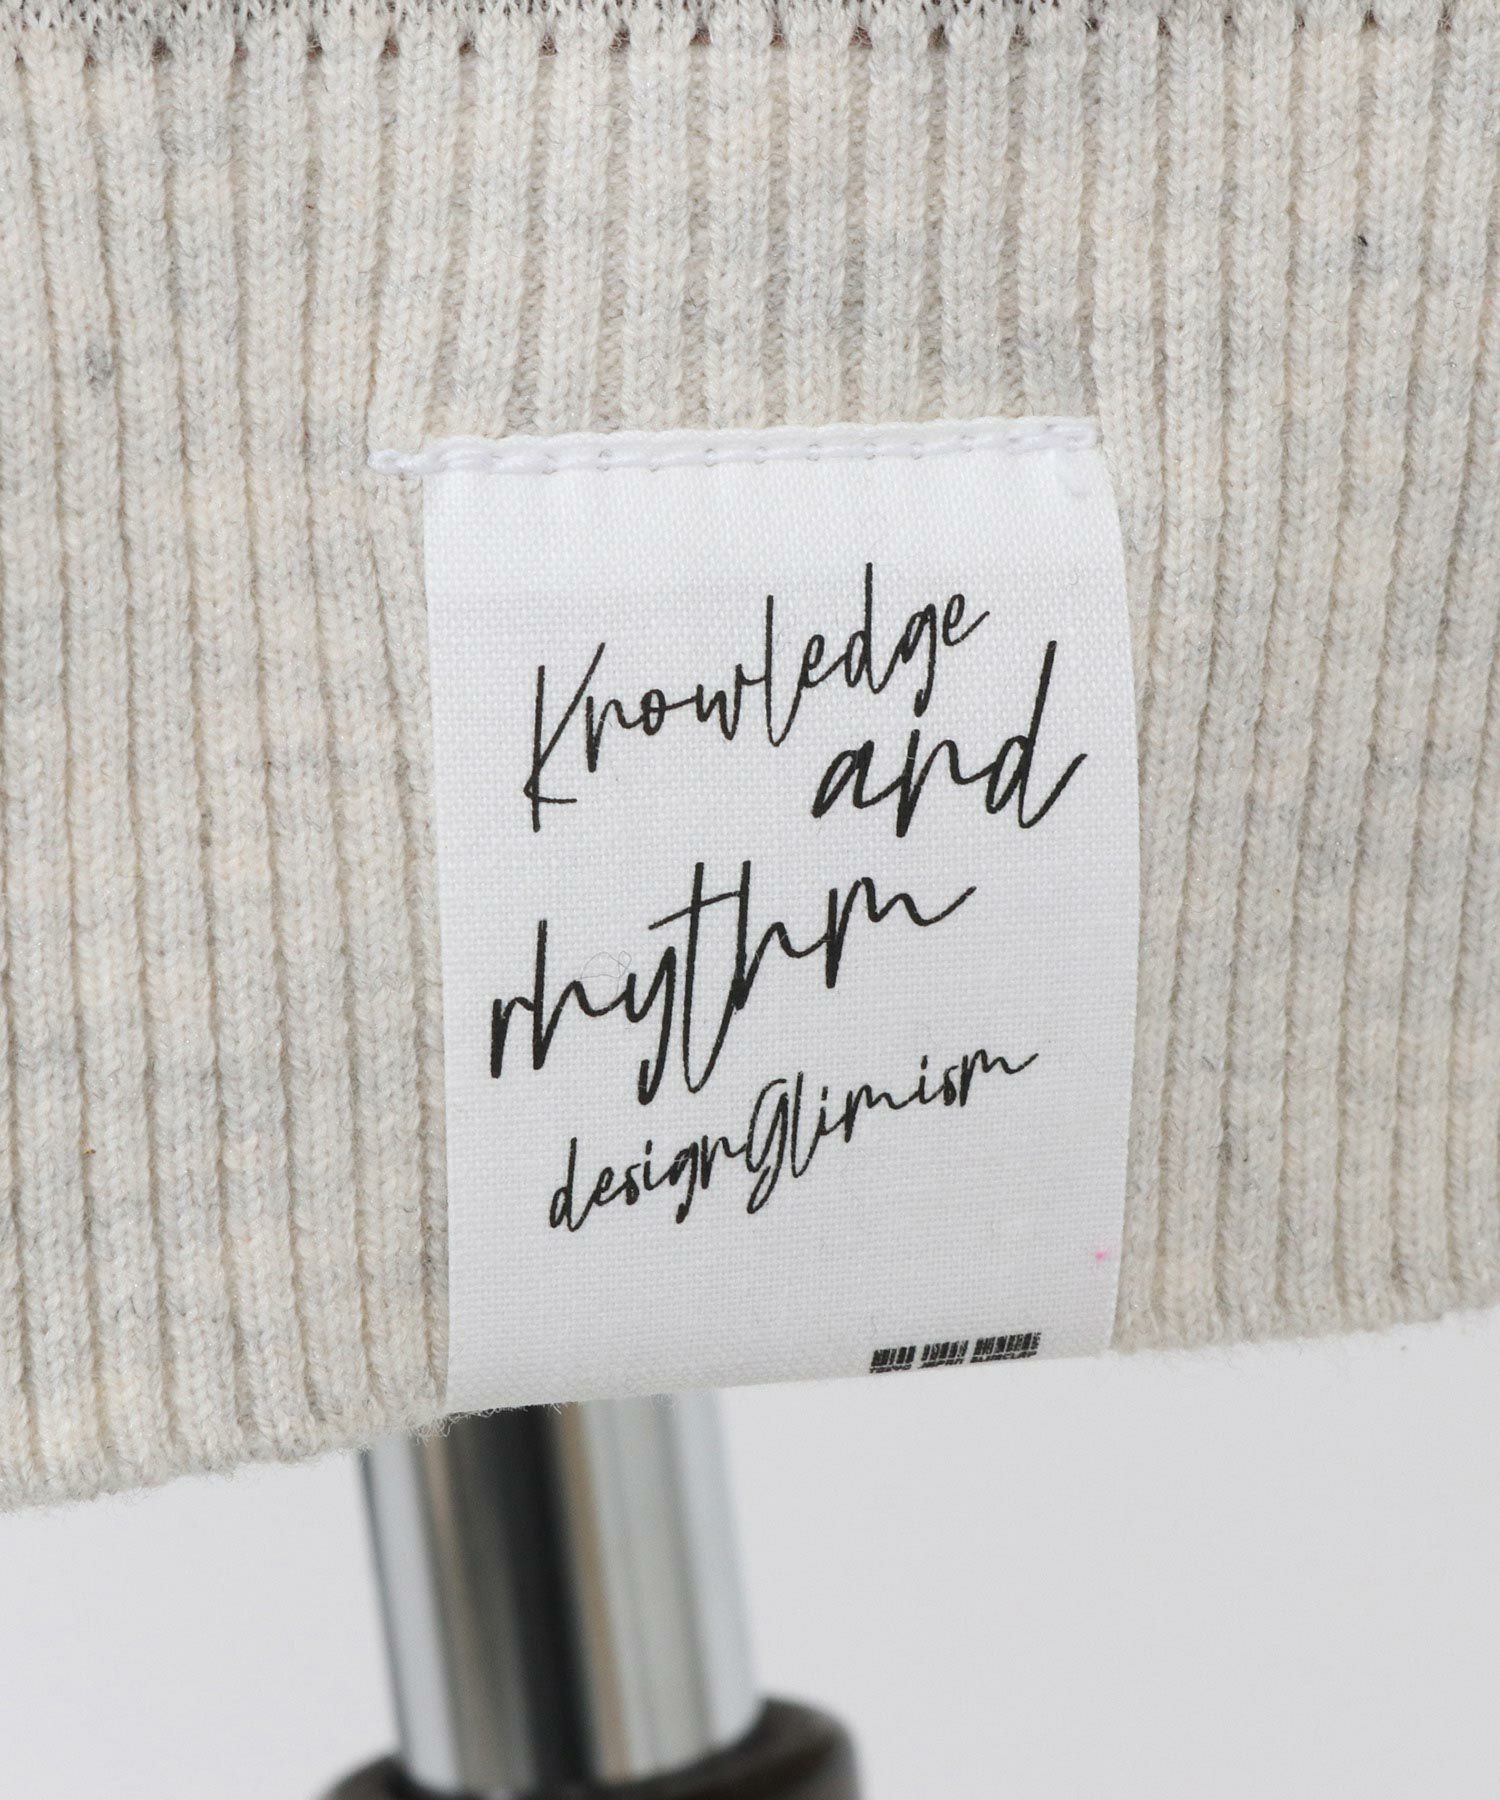 Knowledge
and
rhythm
designGlimism